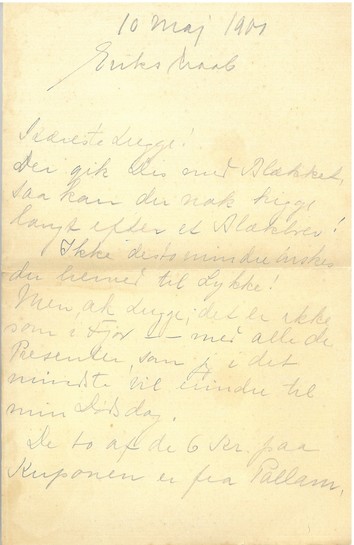 10 Maj 1901
Eriks
Kæreste Lugge!
Der gik Lus med Blækket,
saa kan du nok kigge
langt efter et Blækbrev!
Ikke desto mindre ønskes
du hermed til Lykke!
Men, ak Lugge, det er ikke
som i Fjor — med alle de
Presenter, som jeg i det
mindste vil mindre til
min Dødsdag.
De to af de 6 Kr. paa
Kuponen er fra Pallam,